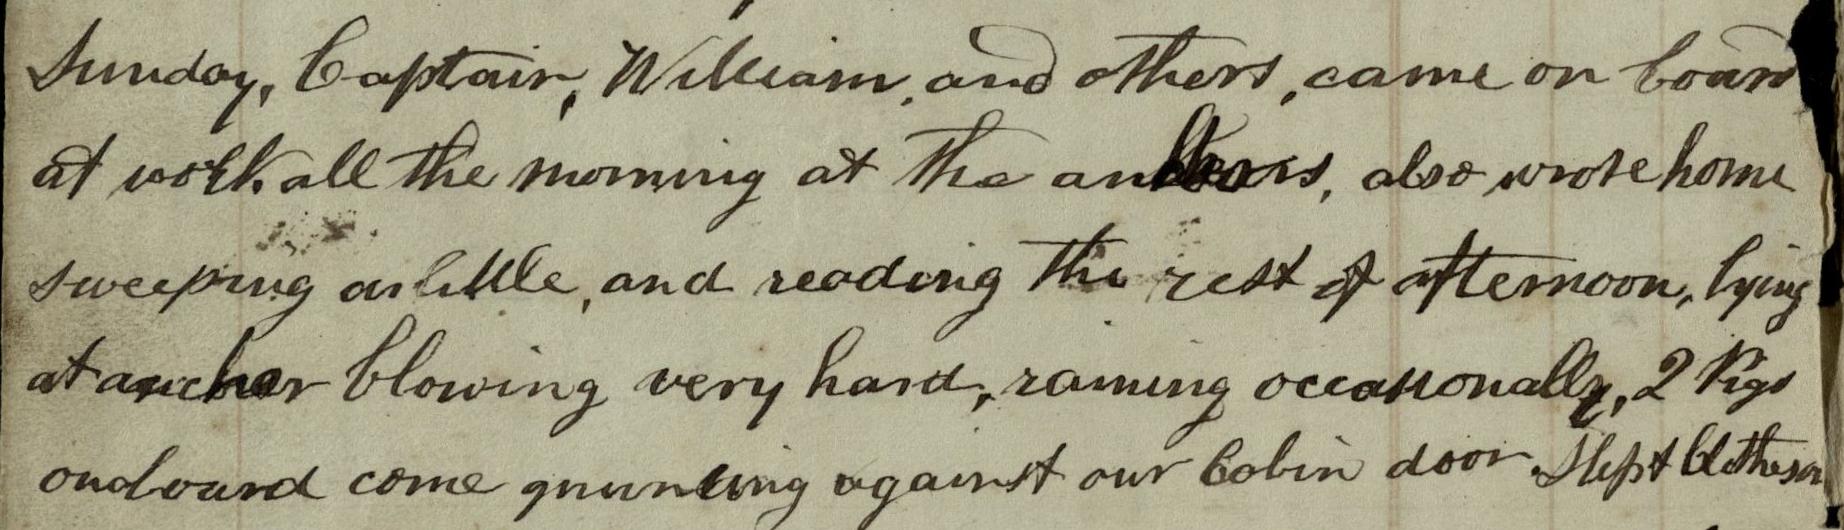 Sunday, Captain, William, and others, came on board
at work all the morning at the anchors, also wrote home
sweeping a little, and reading the rest of afternoon, lying
at anchor blowing very hard, raining occasionally, 2 Pigs
onboard come grunting against our Cabin door. Slept